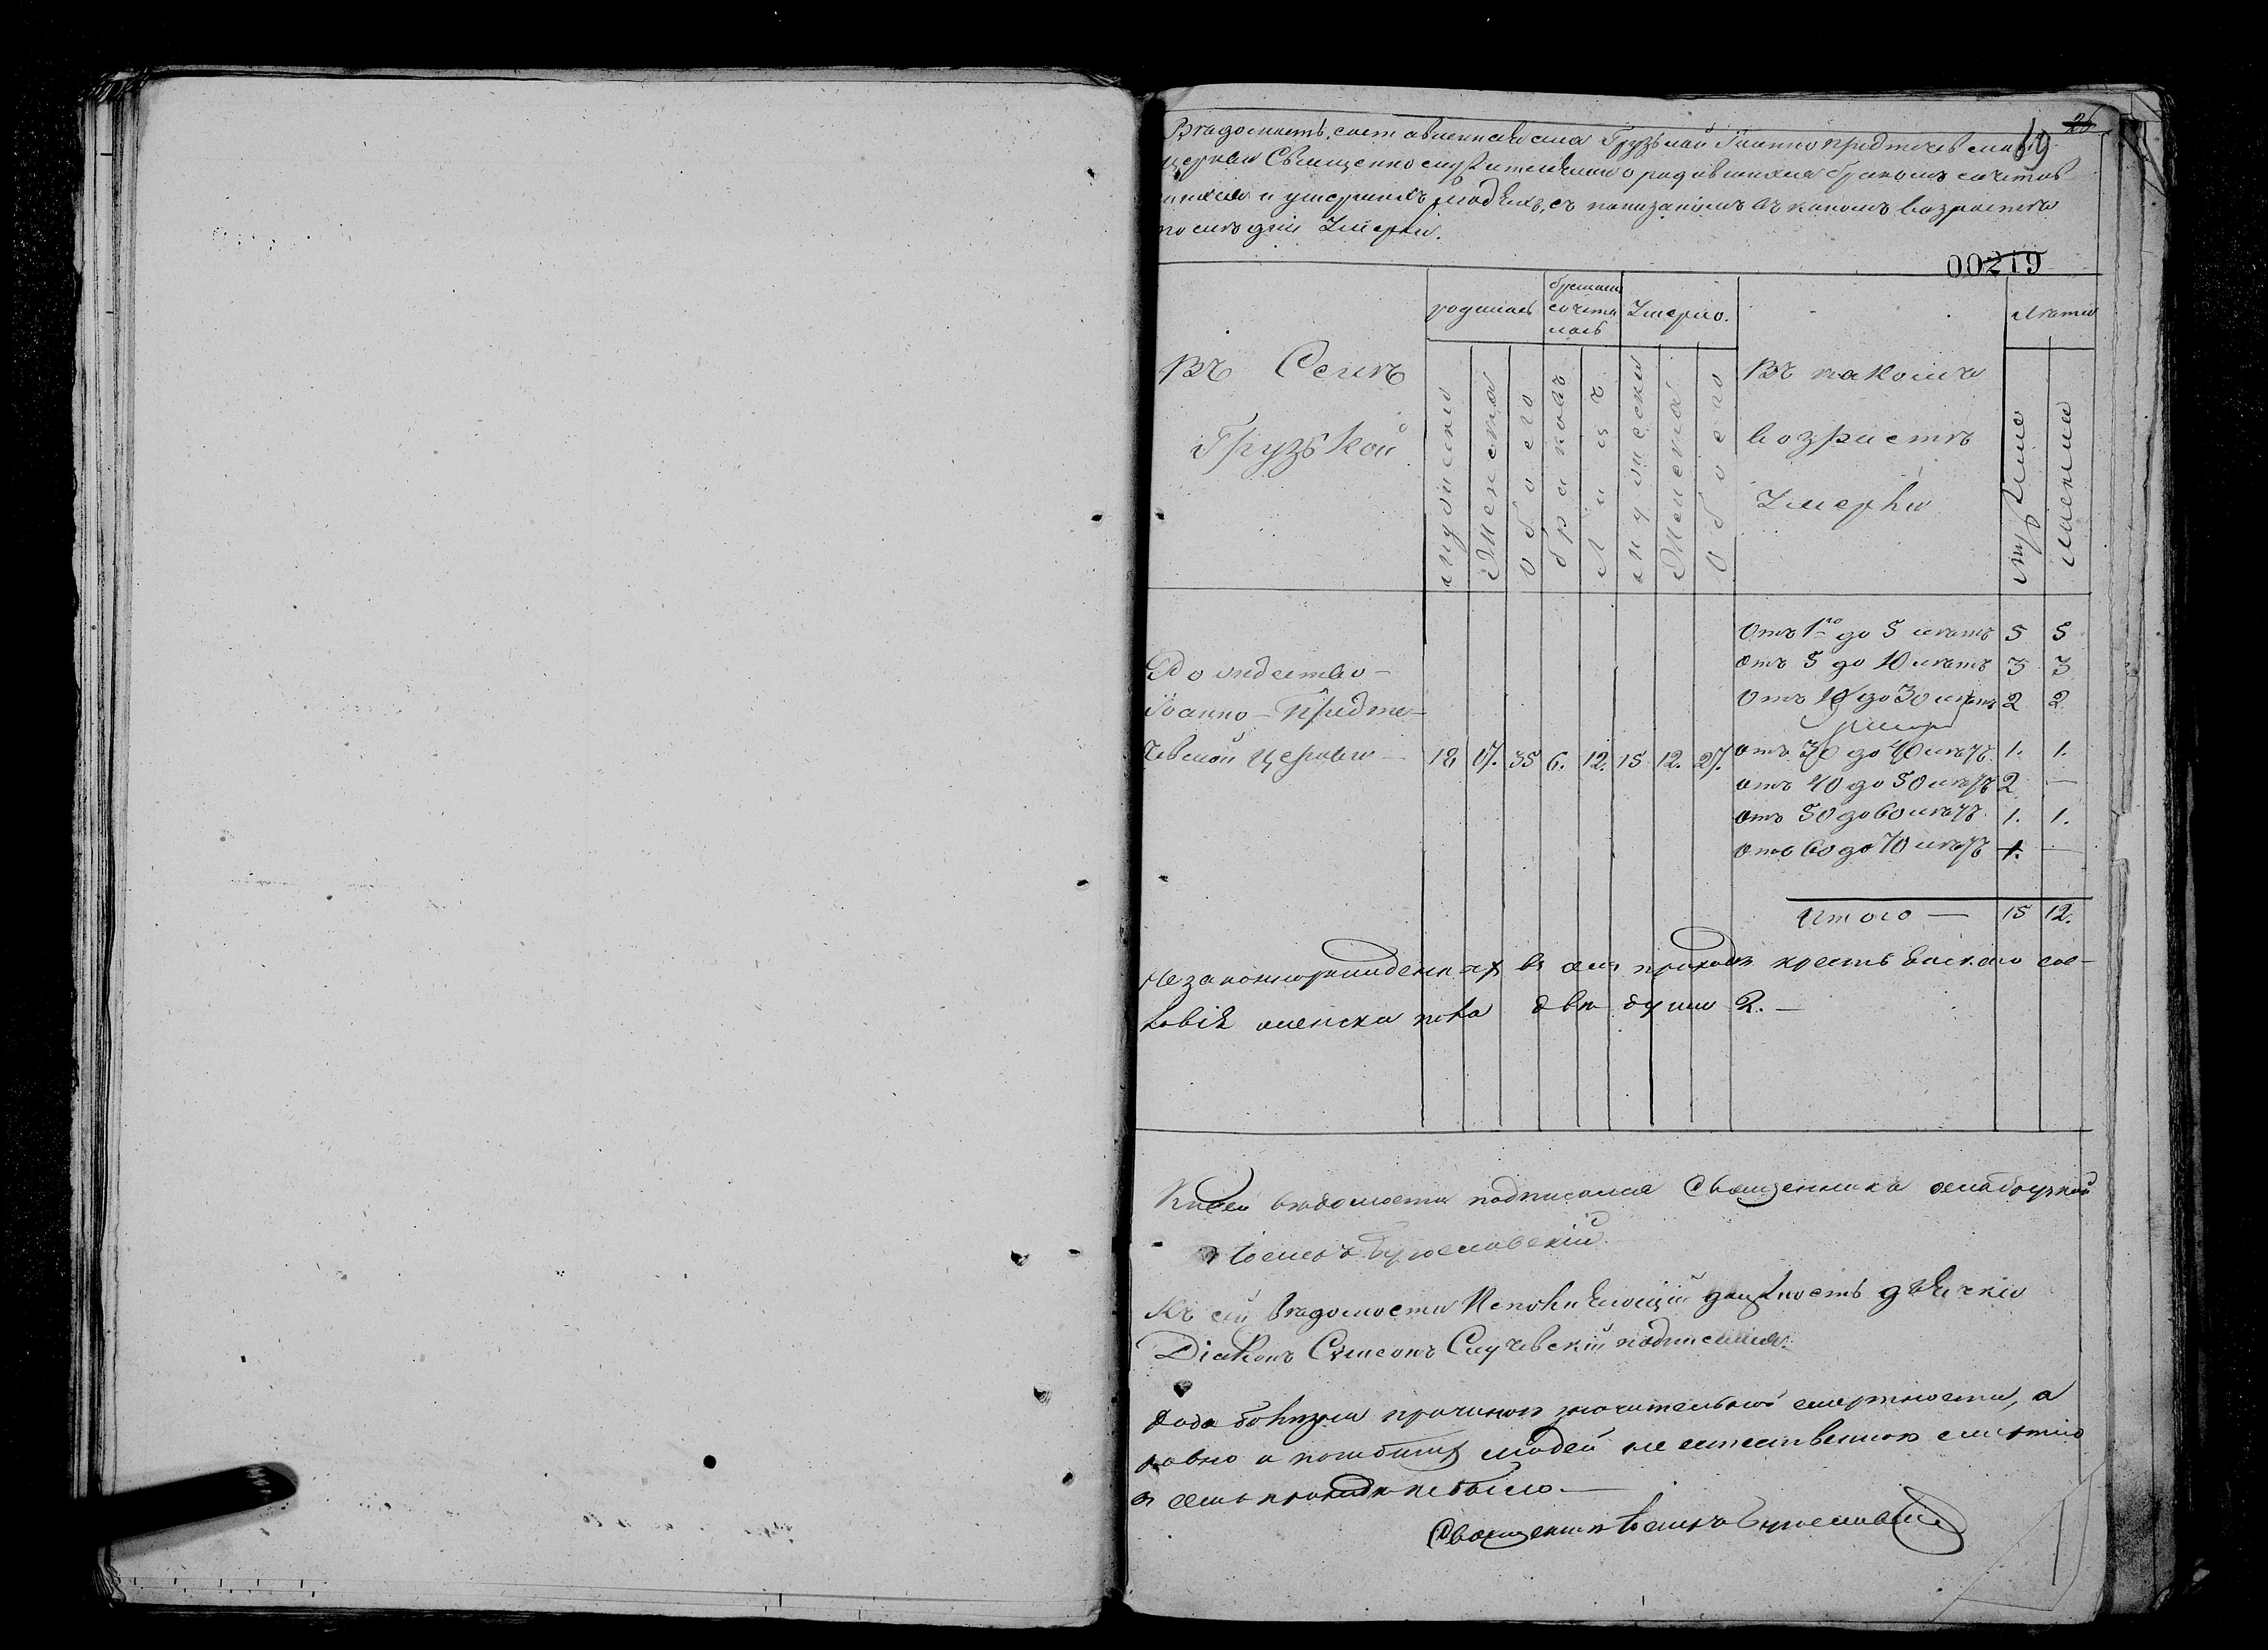 26
69
Вѣдомость, составленная села Грузькой Іоанно предтечевской
церкви Священнослужителями о родившихся бракомъ сочетав
шихся и умершихъ людяхъ, съ показаніемъ въ какомъ возрастѣ
послѣдніи Умерли.
00219
родилось бракомъ сочета лось Умерло. Лѣта
Въ Селѣ Грузькой
мужеска Женска Обоего браковъ Лицъ мужеска Женска Обоего
Въ какомъ возрастѣ Умерли
мужска женска
Отъ 1го до 5 лѣтъ 5 5
отъ 5 до 10 лѣтъ 3 3
Отъ 10 до 30 лѣтъ 2 2
При
Іоанно-Предте-
чевской Церкви — 18 17. 35 6. 12. 15 12. 27. отъ 30 до 40 лѣтъ 1. 1.
отъ 40 до 50 лѣтъ 2 —
отъ 50 до 60 лѣтъ 1. 1.
отъ 60 до 70 лѣтъ 1. —
Итого — 15 12.
Незаконнорожденныхъ въ семъ приходѣ крестьянскаго сос-
ловія женска пола двѣ души 2. —
К сей вѣдомости подписался Священникъ села Грузкой
Къ сей Вѣдомости Исполняющій должность дьячка
Діаконъ Сѵмеонъ Случевскій подписался.
равно и погибшихъ людей не естественною смертію
в семъ приходѣ не было. —
Священникъ